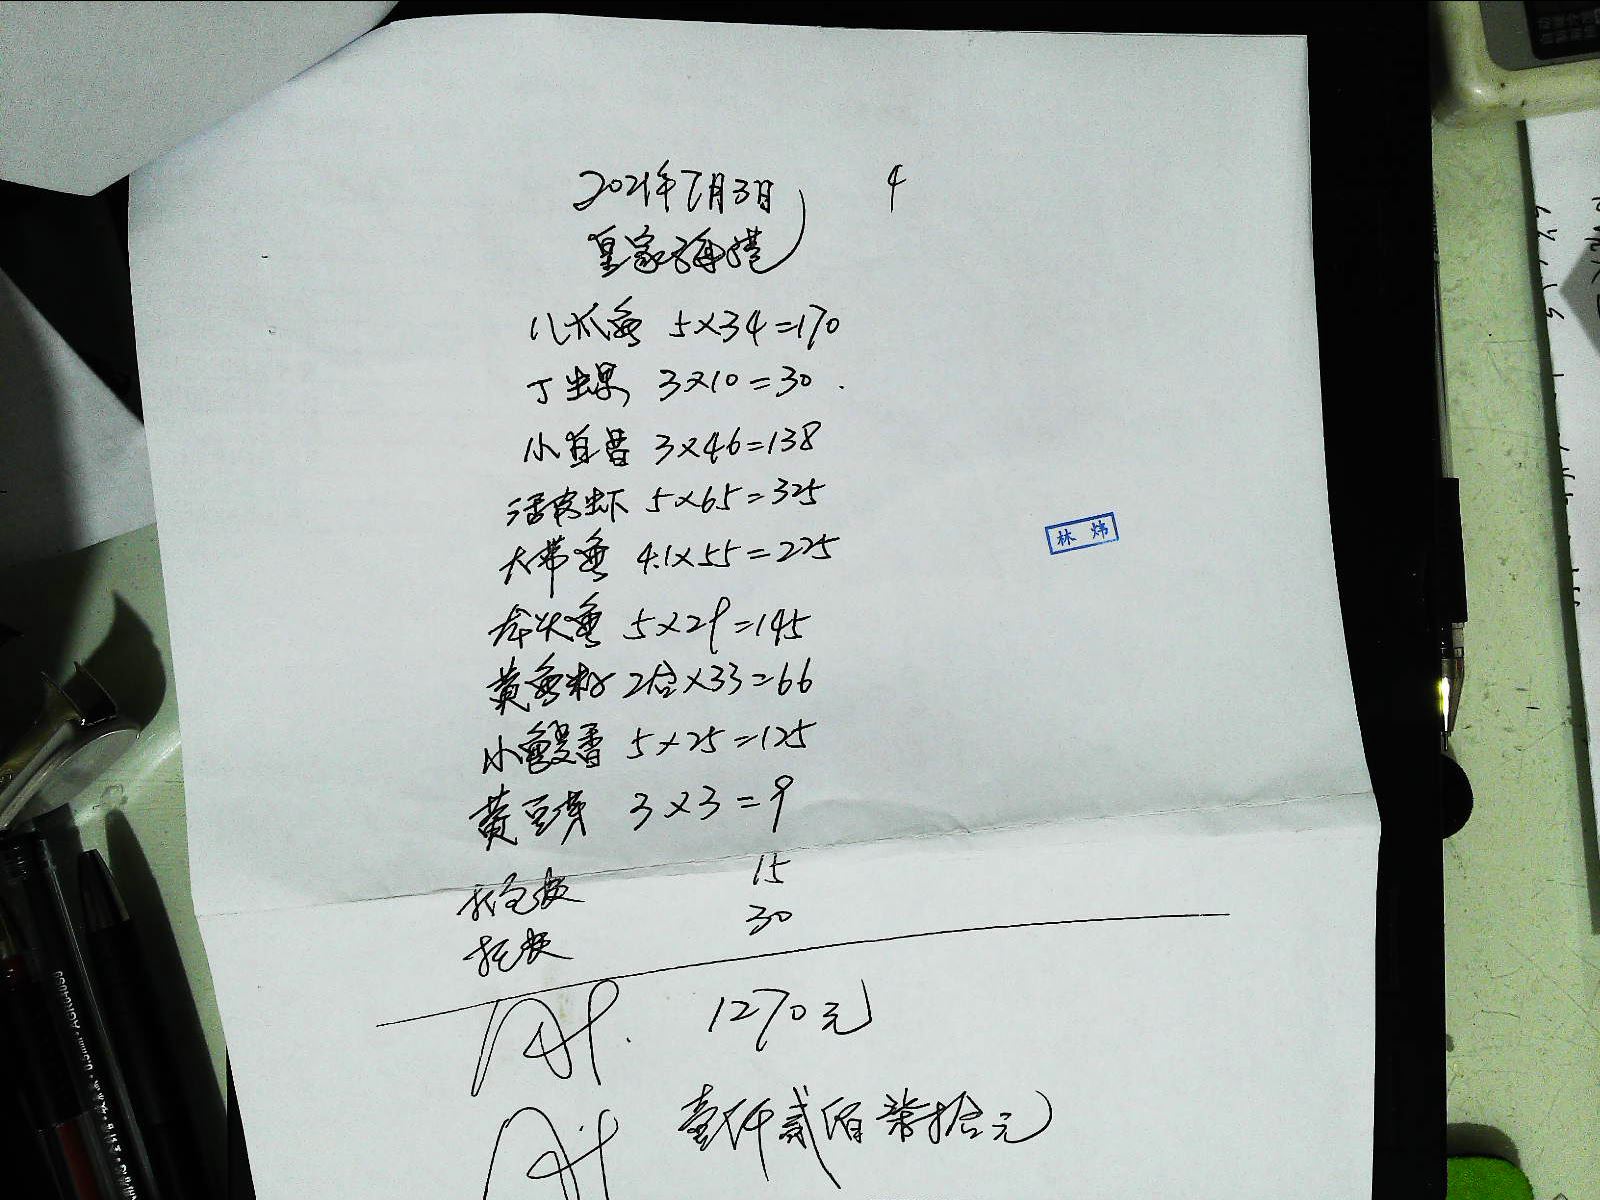 2021年7月3日
4
皇家海港
八爪鱼 5×34=170
丁螺 3×10=30
小鱼 3×46=138
活皮虾 5×65=325
大带鱼 4.1×55=225
伞头鱼 5×29=145
黄鱼籽 2合×33=66
小鳗香 5×25=125
黄豆芽 3×3=9
打包费 15
打费 30
1270元
壹仟贰佰柒拾元
林 炜